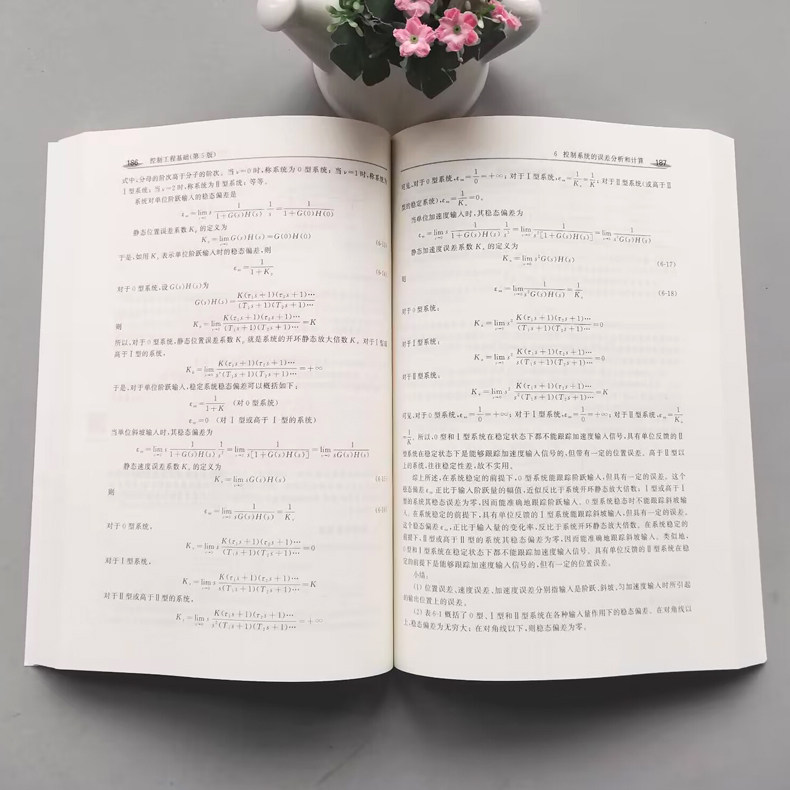 186 控制工程基础(第三版)
式中,分母的阶次高于分子的阶次。当ν=0时,称系统为0型系统;当ν=1时,称系统为
Ⅰ型系统;当ν=2时,称系统为Ⅱ型系统;等等。
系统对单位阶跃输入的稳态偏差是
ε_ss=lim_{s→0} s 1/(1+G(s)H(s)) 1/s=1/(1+G(0)H(0))
静态位置误差系数 K_p 的定义为
K_p=lim_{s→0} G(s)H(s)=G(0)H(0)
于是,如用 K_p 表示单位阶跃输入时的稳态偏差,则
ε_ss=1/(1+K_p)
对于0型系统,设 G(s)H(s)为
G(s)H(s)=K(τ₁s+1)(τ₂s+1)…/(T₁s+1)(T₂s+1)…
则 K_p=lim_{s→0} K(τ₁s+1)(τ₂s+1)…/(T₁s+1)(T₂s+1)…=K
所以,对于0型系统,静态位置误差系数 K_p 就是系统的开环静态放大倍数 K。对于Ⅰ型或
高于Ⅰ型的系统,
K_p=lim_{s→0} K(τ₁s+1)(τ₂s+1)…/s^ν(T₁s+1)(T₂s+1)…=+∞
于是,对于单位阶跃输入,稳定系统稳态偏差可以概括如下:
ε_ss=1/(1+K) (对0型系统)
ε_ss=0 (对Ⅰ型或高于Ⅰ型的系统)
当单位斜坡输入时,其稳态偏差为
ε_ss=lim_{s→0} s 1/(1+G(s)H(s)) 1/s²=lim_{s→0} 1/(s[1+G(s)H(s)])=lim_{s→0} 1/(sG(s)H(s))
静态速度误差系数 K_v 的定义为
K_v=lim_{s→0} sG(s)H(s)
则
ε_ss=lim_{s→0} 1/(sG(s)H(s))=1/K_v
对于0型系统,
K_v=lim_{s→0} s K(τ₁s+1)(τ₂s+1)…/(T₁s+1)(T₂s+1)…=0
对于Ⅰ型系统,
K_v=lim_{s→0} s K(τ₁s+1)(τ₂s+1)…/s(T₁s+1)(T₂s+1)…=K
对于Ⅱ型或高于Ⅱ型的系统,
K_v=lim_{s→0} s K(τ₁s+1)(τ₂s+1)…/s²(T₁s+1)(T₂s+1)…=+∞
6 控制系统的误差分析和计算 187
可见,对于0型系统,ε_ss=1/0=+∞;对于Ⅰ型系统,ε_ss=1/K_v=1/K;对于Ⅱ型系统(或高于Ⅱ
型的稳定系统),ε_ss=1/K_v=0。
当单位加速度输入时,其稳态偏差为
ε_ss=lim_{s→0} s 1/(1+G(s)H(s)) 1/s³=lim_{s→0} 1/(s²[1+G(s)H(s)])=lim_{s→0} 1/(s²G(s)H(s))
静态加速度误差系数 K_a 的定义为
K_a=lim_{s→0} s²G(s)H(s) (6-17)
则
ε_ss=lim_{s→0} 1/(s²G(s)H(s))=1/K_a (6-18)
对于0型系统,
K_a=lim_{s→0} s² K(τ₁s+1)(τ₂s+1)…/(T₁s+1)(T₂s+1)…=0
对于Ⅰ型系统,
K_a=lim_{s→0} s² K(τ₁s+1)(τ₂s+1)…/s(T₁s+1)(T₂s+1)…=0
对于Ⅱ型系统,
K_a=lim_{s→0} s² K(τ₁s+1)(τ₂s+1)…/s²(T₁s+1)(T₂s+1)…=K
可见,对于0型系统,ε_ss=1/0=+∞;对于Ⅰ型系统,ε_ss=1/0=+∞;对于Ⅱ型系统,ε_ss=1/K_a
=1/K。所以,0型和Ⅰ型系统在稳定状态下都不能跟踪加速度输入信号,具有单位反馈的Ⅱ
型系统在稳定状态下是能够跟踪加速度输入信号的,但带有一定的位置误差。高于Ⅱ型以
上的系统,往往稳定性差,故不实用。
综上所述,在系统稳定的前提下,0型系统能跟踪阶跃输入,但具有一定的误差。这个
稳态偏差 ε_ss 正比于输入阶跃量的幅值,近似反比于系统开环静态放大倍数。Ⅰ型或高于Ⅰ
型的系统其稳态误差为零,因而能准确地跟踪阶跃输入。0型系统稳态时不能跟踪斜坡输
入。在系统稳定的前提下,具有单位反馈的Ⅰ型系统能跟踪斜坡输入,但具有一定的误差。
这个稳态偏差 ε_ss 正比于输入量的变化率,反比于系统开环静态放大倍数。在系统稳定的
前提下,Ⅱ型或高于Ⅱ型的系统其稳态偏差为零,因而能准确地跟踪斜坡输入。类似地,
0型和Ⅰ型系统在稳定状态下都不能跟踪加速度输入信号。具有单位反馈的Ⅱ型系统在稳
定的前提下是能够跟踪加速度输入信号的,但有一定的位置误差。
小结:
(1) 位置误差、速度误差、加速度误差分别指输入是阶跃、斜坡、匀加速度输入时所引起
的输出位置上的误差。
(2) 表6-1概括了0型、Ⅰ型和Ⅱ型系统在各种输入量作用下的稳态偏差。在对角线以
上,稳态偏差为无穷大;在对角线以下,则稳态偏差为零。